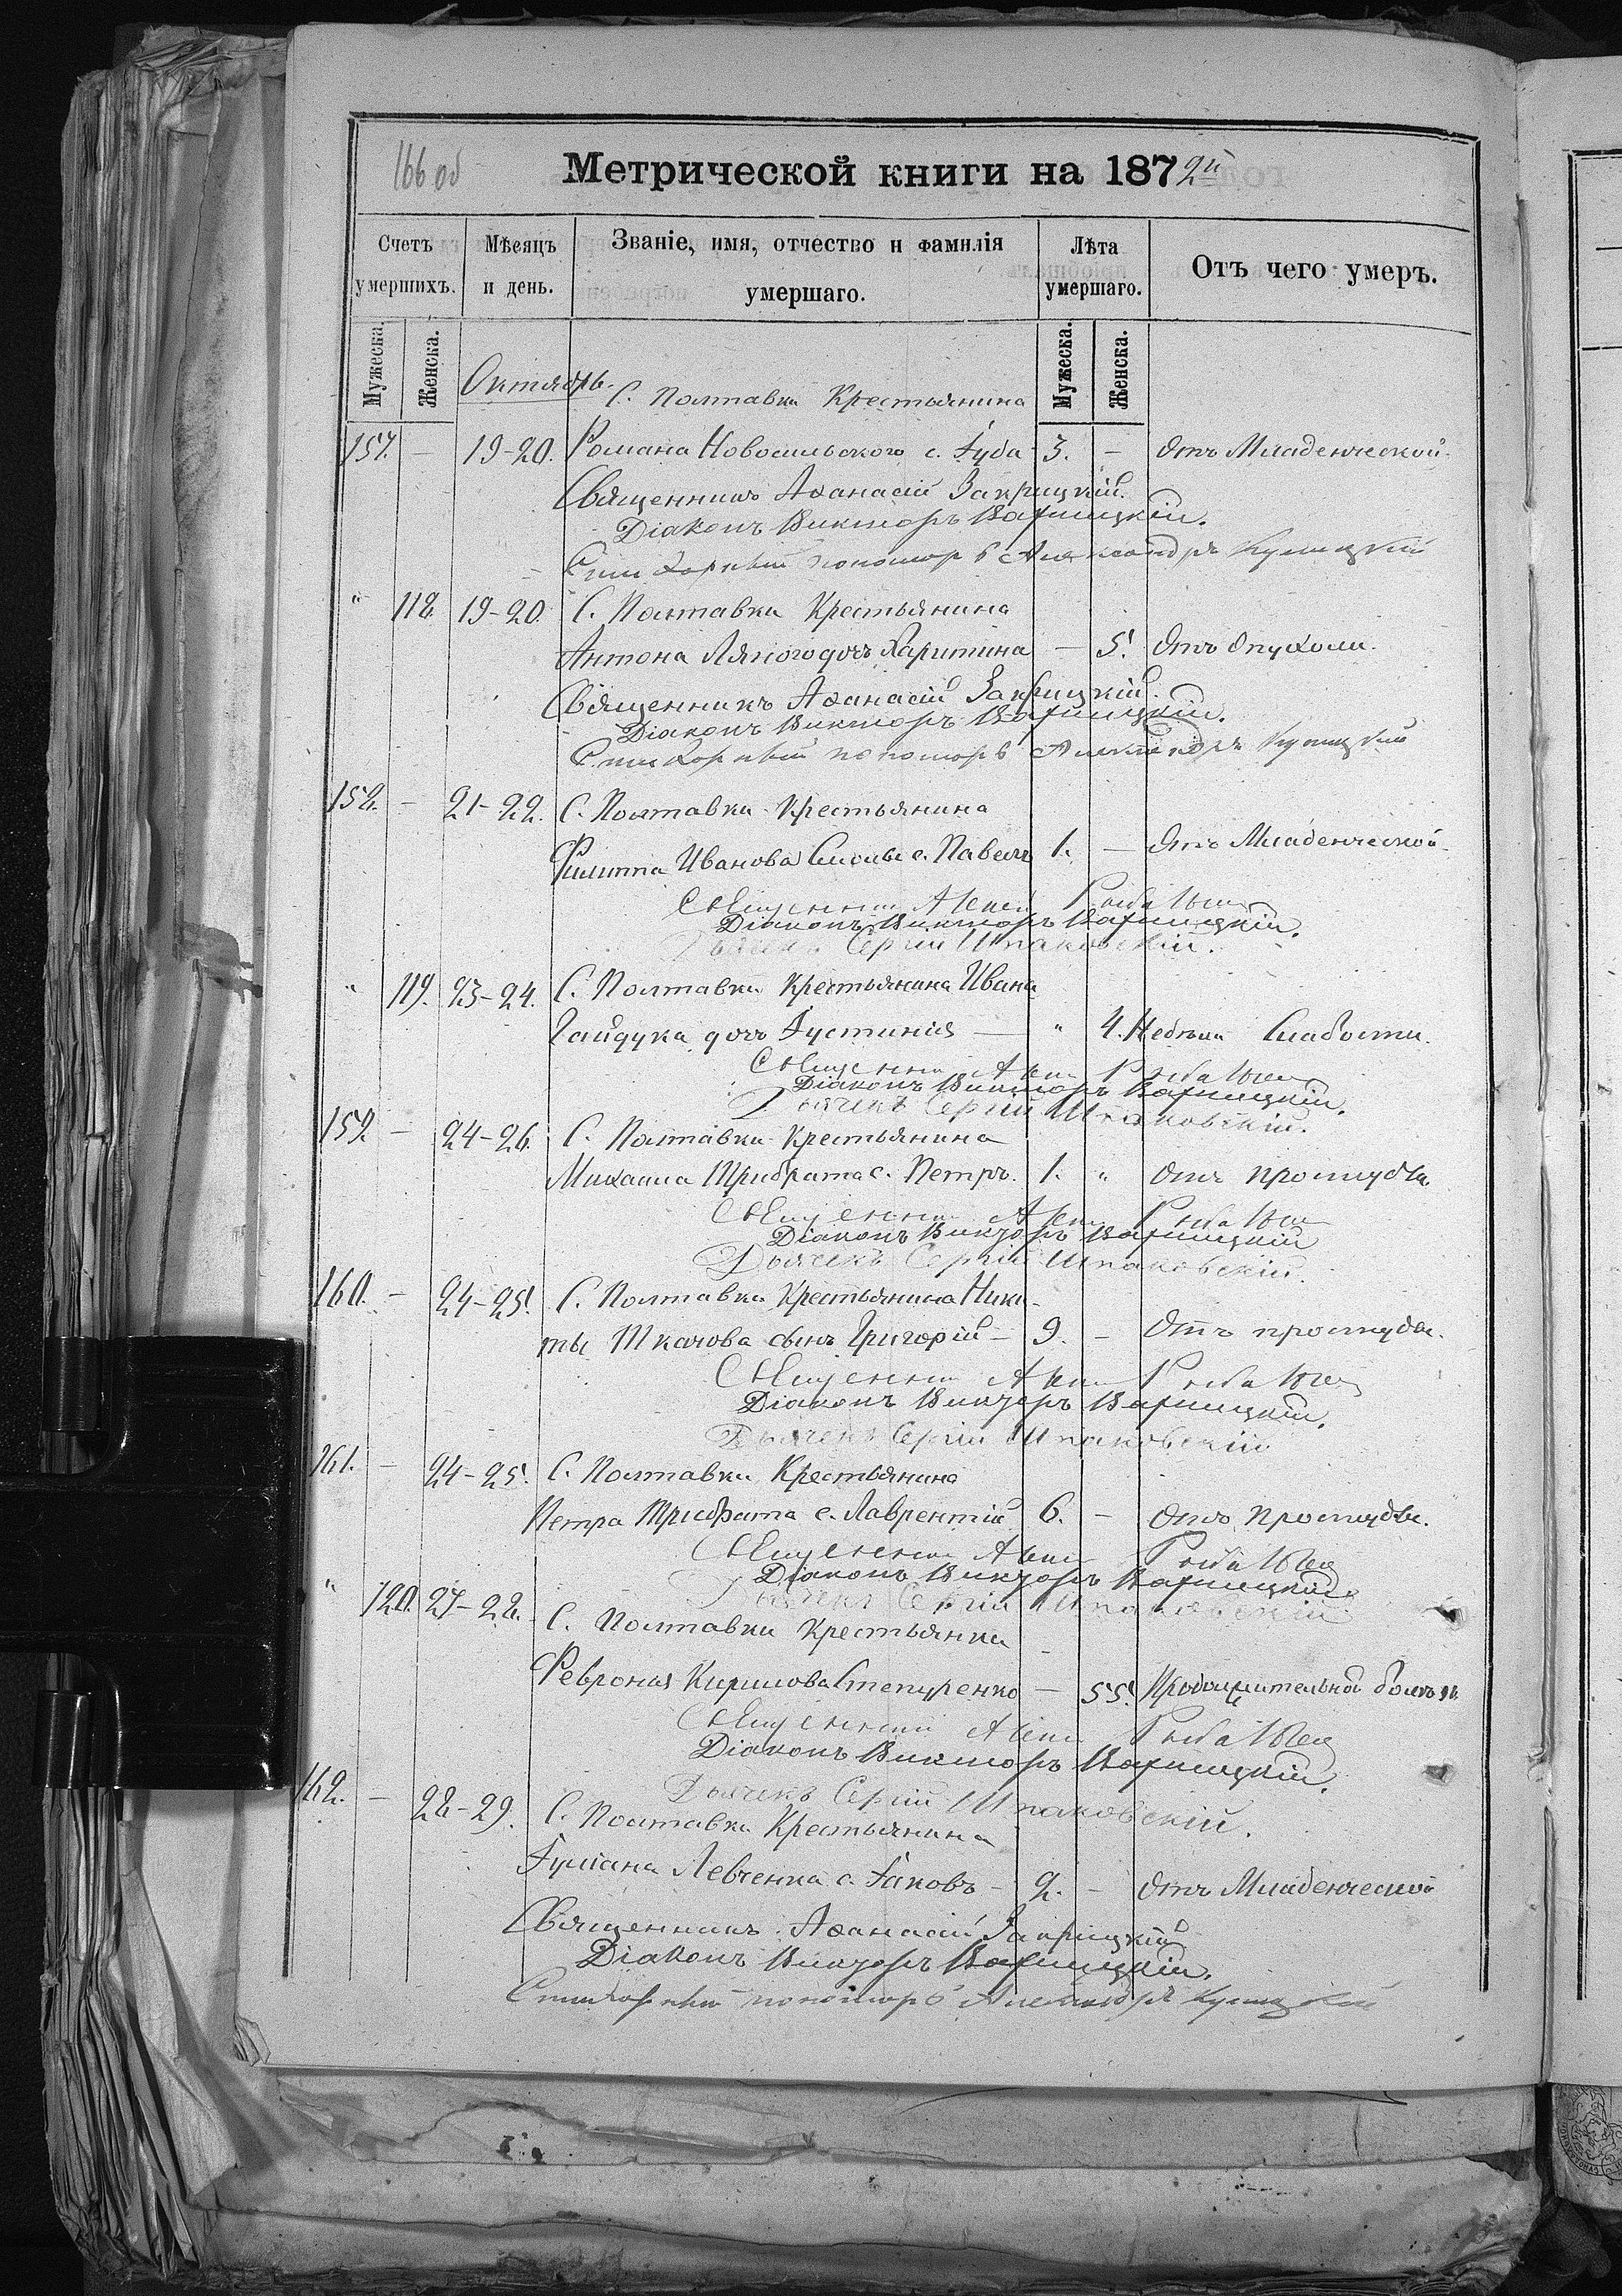 166 об
Метрической книги на 1872й
Счетъ умершихъ. Мѣсяцъ и день. Званіе, имя, отчество и фамилія умершаго. Лѣта умершаго. Отъ чего умеръ.
Мужеска. Женска. Мужеска. Женска.
Октябрь.
С. Полтавки Крестьянина
157. — 19-20. Романа Новосильского с. Іуда 3. — Отъ Младенческой
Священникъ Аѳанасій Закрицкій.
Діаконъ Викторъ Варницкій.
Стихарный пономарь Александръ Кулицкій
" 118. 19-20. С. Полтавки Крестьянина
Антона Лялюго дочь Харитина — 5. Отъ Опухоли.
Священникъ Аѳанасій Закрицкій.
Діаконъ Викторъ Варницкій.
Стихарный пономарь Александръ Кулицкій
158. — 21-22. С. Полтавки Крестьянина
Филиппа Иванова с. Павелъ 1. — Отъ Младенческой
Священникъ
Діаконъ Викторъ Варницкій.
Дьячекъ Сергій Шпаковскій.
" 119. 23-24. С. Полтавки Крестьянина Ивана
Гайдука дочь Іустинія — " 4. Недѣли Слабости.
Священникъ
Діаконъ Викторъ Варницкій.
Дьячекъ Сергій Шпаковскій.
159. — 24-26. С. Полтавки Крестьянина
Михаила Трибрата с. Петръ. 1. " Отъ простуды
Священникъ
Діаконъ Викторъ Варницкій
Дьячекъ Сергій Шпаковскій.
160. — 24-25. С. Полтавки Крестьянина Ники-
ты Ткачова сынъ Григорій — 9. — Отъ простуды.
Священникъ
Діаконъ Викторъ Варницкій.
Дьячекъ Сергій Шпаковскій
161. — 24-25. С. Полтавки Крестьянина
Петра Трибрата с. Лаврентій 6. — Отъ простуды.
Священникъ
Діаконъ Викторъ Варницкій.
Дьячекъ Сергій Шпаковскій
" 120. 27-28. С. Полтавки Крестьянка
Февронія Кирилова Степуренко — 55. Продолжительной болѣзн.
Священникъ
Діаконъ Викторъ Варницкій.
Дьячекъ Сергій Шпаковскій.
162. — 28-29. С. Полтавки Крестьянина
Іуліана Левченка с. Іаковъ — 2. — Отъ Младенческой
Священникъ Аѳанасій Закрицкій
Діаконъ Викторъ Варницкій.
Стихарный пономарь Александръ Кулицкій